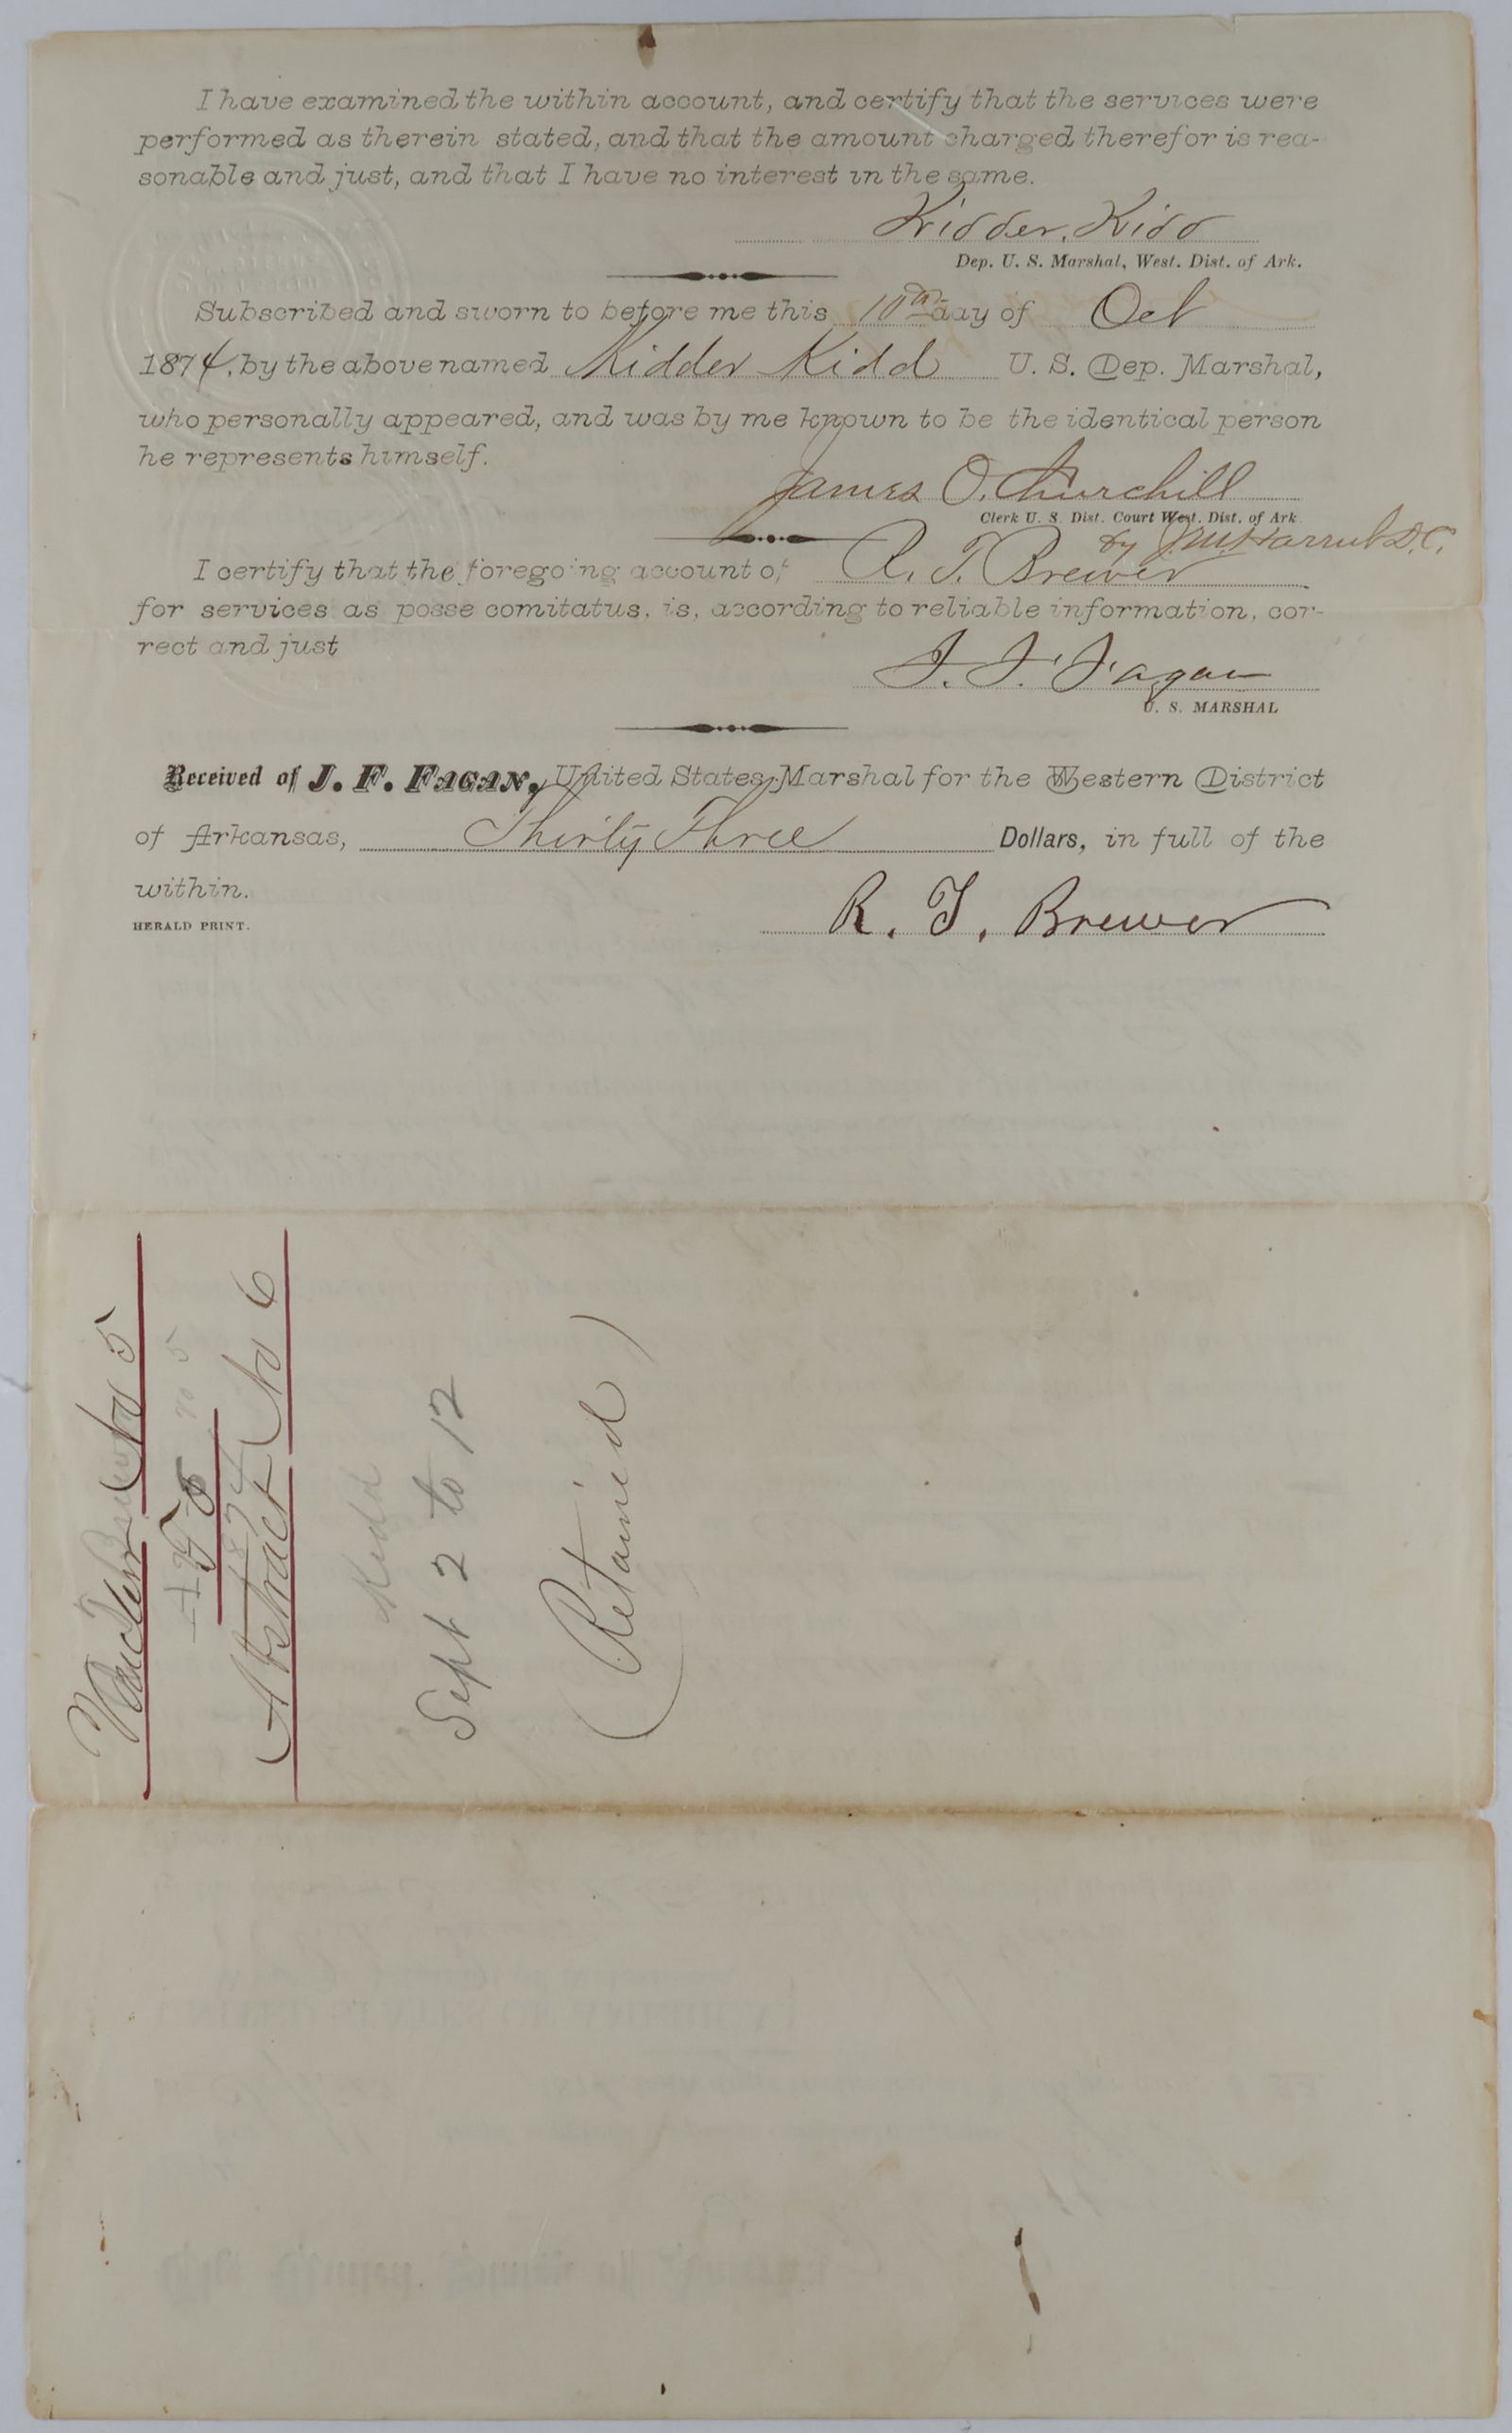 I have examined the within account, and certify that the services were
performed as therein stated, and that the amount charged therefor is rea-
sonable and just, and that I have no interest in the same.
Kidder Kidd
Dep. U. S. Marshal, West. Dist. of Ark.
Subscribed and sworn to before me this 10th day of Oct
1874, by the above named Kidder Kidd U. S. Dep. Marshal,
who personally appeared, and was by me known to be the identical person
he represents himself.
James O. Churchill
Clerk U. S. Dist. Court West. Dist. of Ark.
by D.C.
I certify that the foregoing account of R. T. Brewer
for services as posse comitatus, is, according to reliable information, cor-
rect and just
J. F. Fagan
U. S. MARSHAL
Received of J. F. FAGAN, United States Marshal for the Western District
of Arkansas, Thirty Three Dollars, in full of the
within.
HERALD PRINT.
R. T. Brewer
Voucher No 5
No 5
Abstract No 6
1874
Kidd
Sept 2 to 12
(Retained)